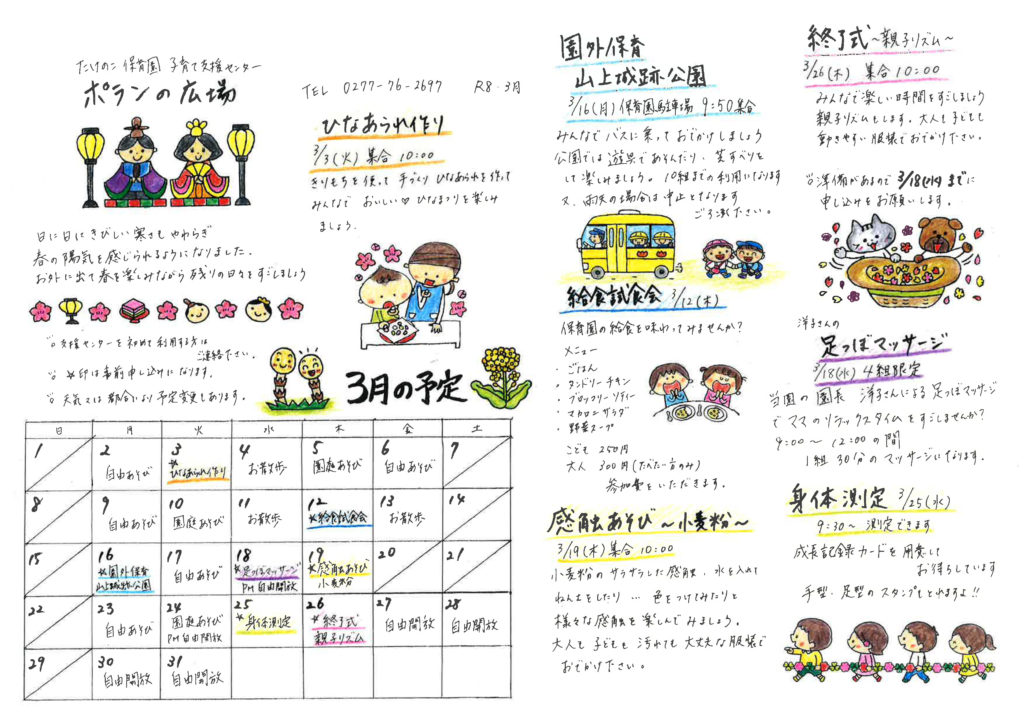 たけのこ保育園 子育て支援センター
ポランの広場
TEL 0277-76-2697 R8.3月
ひなあられ作り
3/3(火) 集合 10:00
きりもちを使って 手づくり ひなあられを作って
みんなで おいしい♡ ひなまつりを楽しみ
ましょう。
日に日にきびしい寒さも やわらぎ
春の陽気を感じられるようになりました。
お外に出て春を楽しみながら残りの日々をすごしましょう
支援センターを初めて利用する方は
ご連絡下さい。
*印は事前申し込みになります。
天気又は都合により予定変更もあります。
3月の予定
日 月 火 水 木 金 土
1 2 3 4 5 6 7
自由あそび *ひなあられ作り お散歩 園庭あそび 自由あそび
8 9 10 11 12 13 14
自由あそび 園庭あそび お散歩 *給食試食会 お散歩
15 16 17 18 19 20 21
*園外保育 山上城跡公園 自由あそび *足つぼマッサージ PM 自由開放 *感触あそび 小麦粉
22 23 24 25 26 27 28
自由あそび 園庭あそび PM 自由開放 *身体測定 *終了式 親子リズム 自由開放 自由開放
29 30 31
自由開放 自由開放
園外保育
山上城跡公園
3/16(月) 保育園駐車場 9:50集合
みんなで バスに乗って おでかけしましょう
公園では 遊具であそんだり、芝すべりを
して楽しみましょう。10組までの利用になります
又、雨天の場合は中止となります
ご了承ください。
給食試食会 3/12(木)
保育園の給食を味わってみませんか?
メニュー
・ごはん
・タンドリーチキン
・ブロッコリーソティー
・マカロニサラダ
・野菜スープ
こども 250円
大人 300円(たべたい方のみ)
参加費をいただきます。
感触あそび ~小麦粉~
3/19(木) 集合 10:00
小麦粉のサラサラした感触、水を入れて
ねんどをしたり … 色をつけてみたりと
様々な感触を楽しんでみましょう。
大人も子どもも 汚れても大丈夫な服装で
おでかけ下さい。
終了式 ~親子リズム~
3/26(木) 集合 10:00
みんなで楽しい時間をすごしましょう
親子リズムもします。大人も子どもも
動きやすい服装でおでかけ下さい。
準備があるので 3/18(水)までに
申し込みをお願いします。
洋子さんの
足つぼマッサージ
3/18(水) 4組限定
当園の園長 洋子さんによる 足つぼマッサージ
でママのリラックスタイムをすごしませんか?
9:00~12:00の間
1組30分のマッサージになります。
身体測定 3/25(水)
9:30~ 測定できます
成長記録カードを用意して
お待ちしています
手型・足型のスタンプもとれますよ!!